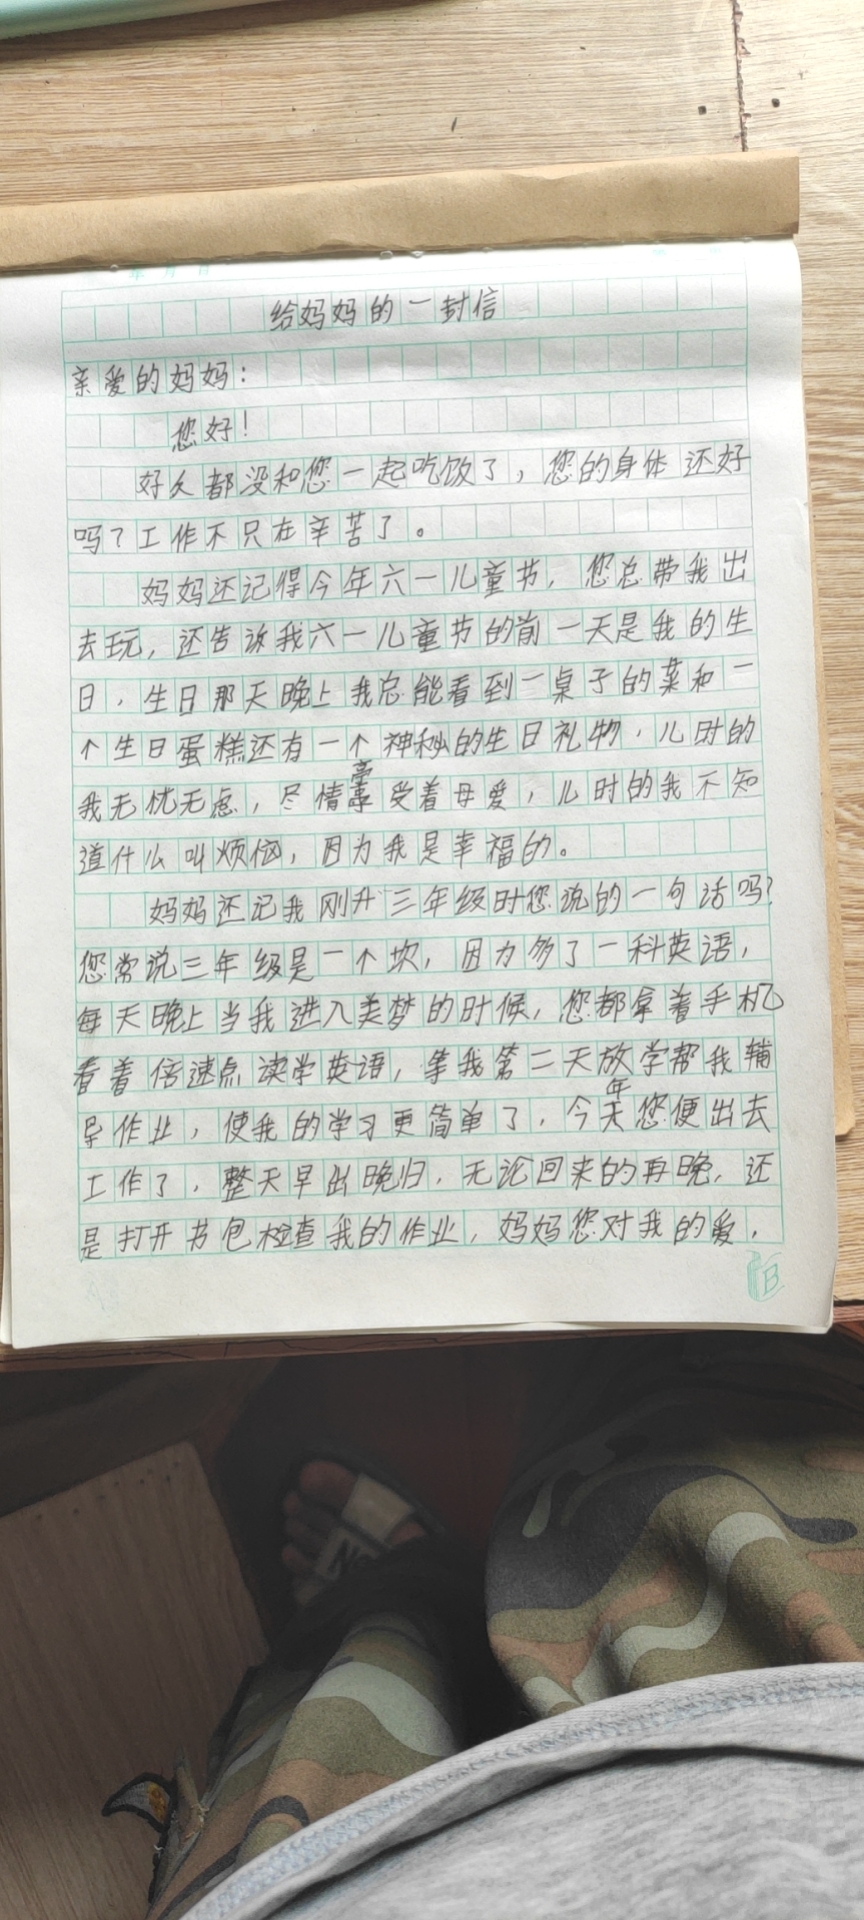 给妈妈的一封信
亲爱的妈妈：
您好！
好久都没和您一起吃饭了，您的身体还好
吗？工作不只在辛苦了。
妈妈还记得今年六一儿童节，您总带我出
去玩，还告诉我六一儿童节的前一天是我的生
日，生日那天晚上我总能看到一桌子的菜和一
个生日蛋糕还有一个神秘的生日礼物，儿时的
我无忧无虑，尽情享受着母爱，儿时的我不知
道什么叫烦恼，因为我是幸福的。
妈妈还记我刚升三年级时您说的一句话吗？
您常说三年级是一个坎，因为多了一科英语，
每天晚上当我进入美梦的时候，您都拿着手机
看着倍速点读学英语，等我第二天放学帮我辅
导作业，使我的学习更简单了，今年您便出去
工作了，整天早出晚归，无论回来的再晚，还
是打开书包检查我的作业，妈妈您对我的爱，